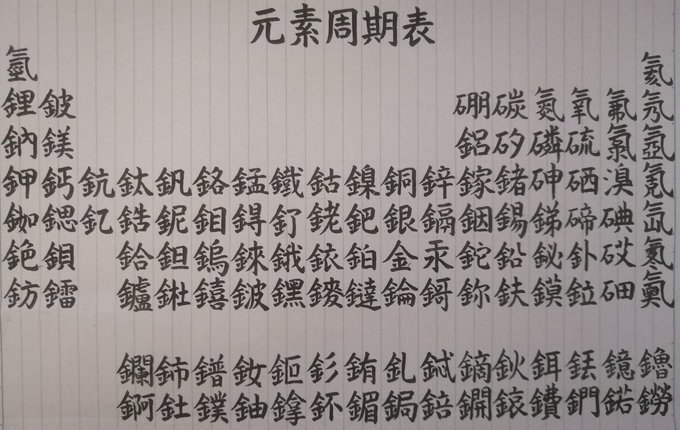 元素周期表
氫氦
鋰鈹硼碳氮氧氟氖
鈉鎂鋁矽磷硫氯氬
鉀鈣鈧鈦釩鉻錳鐵鈷鎳銅鋅鎵鍺砷硒溴氪
銣鍶釔鋯鈮鉬鍀釕銠鈀銀鎘銦錫銻碲碘氙
銫鋇鉿鉭鎢錸鋨銥鉑金汞鉈鉛鉍釙砹氡
鈁鐳鑪𨧀𨭎𨨏𨭆䥑鐽錀鎶鉨鈇鏌鉝鿬鿫
鑭鈰鐠釹鉕釤銪釓鋱鏑鈥鉺銩鐿鑥
錒釷鏷鈾鎿鈈鎇鋦錇鐦鎄鐨鍆鍩鐒